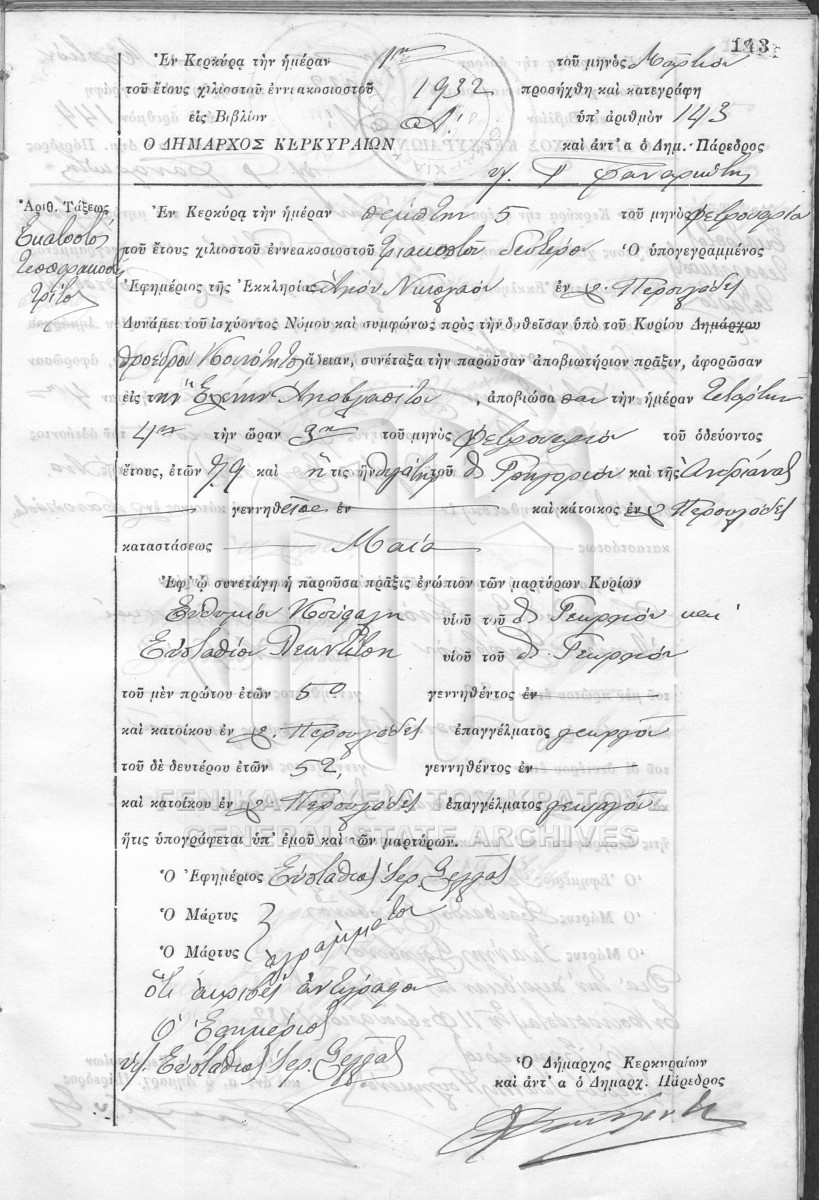 143
Ἐν Κερκύρᾳ τὴν ἡμέραν 1ην τοῦ μηνὸς Μαρτίου
τοῦ ἔτους χιλιοστοῦ ἐννεακοσιοστοῦ 1932 προσήχθη καὶ κατεγράφη
εἰς Βιβλίον Α! ὑπ' ἀριθμὸν 143
Ὁ ΔΗΜΑΡΧΟΣ ΚΕΡΚΥΡΑΙΩΝ καὶ ἀντ' α ὁ Δημ. Πάρεδρος
Ἀριθ. Τάξεως
Ἑκατοστὸς
τεσσαρακοστὸς
τρίτος
Ἐν Κερκύρᾳ τὴν ἡμέραν πέμπτην 5 τοῦ μηνὸς Φεβρουαρίου
τοῦ ἔτους χιλιοστοῦ ἐννεακοσιοστοῦ τριακοστοῦ δευτέρου Ὁ ὑπογεγραμμένος
Ἐφημέριος τῆς Ἐκκλησίας Ἁγίου Νικολάου ἐν χ. Περουλάδες
Δυνάμει τοῦ ἰσχύοντος Νόμου καὶ συμφώνως πρὸς τὴν δοθεῖσαν ὑπὸ τοῦ Κυρίου Δημάρχου
προέδρου Κοινότητος ἄδειαν, συνέταξα τὴν παροῦσαν ἀποβιωτήριον πρᾶξιν, ἀφορῶσαν
εἰς τὴν Ἑλένην, ἀποβιώσασαν τὴν ἡμέραν τετάρτην
4ην τὴν ὥραν 3ην τοῦ μηνὸς Φεβρουαρίου τοῦ ὁδεύοντος
ἔτους, ἐτῶν 79 καὶ ἥτις ἦν θυγάτηρ τοῦ Γρηγορίου καὶ τῆς Ἀνδριάνας
γεννηθεῖσα ἐν καὶ κάτοικος ἐν χ Περουλάδες
καταστάσεως
Ἐφ' ᾧ συνετάγη ἡ παροῦσα πρᾶξις ἐνώπιον τῶν μαρτύρων Κυρίων
Εὐθυμίου υἱοῦ τοῦ Γεωργίου καὶ
Εὐσταθίου υἱοῦ τοῦ Γεωργίου
τοῦ μὲν πρώτου ἐτῶν 50 γεννηθέντος ἐν
καὶ κατοίκου ἐν χ. Περουλάδες ἐπαγγέλματος γεωργοῦ
τοῦ δὲ δευτέρου ἐτῶν 52, γεννηθέντος ἐν
καὶ κατοίκου ἐν χ Περουλάδες ἐπαγγέλματος γεωργοῦ
ΓΕΝΙΚΑ ΑΡΧΕΙΑ ΤΟΥ ΚΡΑΤΟΥΣ
GENERAL STATE ARCHIVES
ἥτις ὑπογράφεται ὑπ' ἐμοῦ καὶ τῶν μαρτύρων.
Ὁ Ἐφημέριος Εὐστάθιος Ἱερ.
Ὁ Μάρτυς
Ὁ Μάρτυς ἀγράμματοι
ὅτι ἀκριβὲς ἀντίγραφον
Ὁ Ἐφημέριος
Εὐστάθιος Ἱερ.
Ὁ Δήμαρχος Κερκυραίων
καὶ ἀντ' α ὁ Δημαρχ. Πάρεδρος